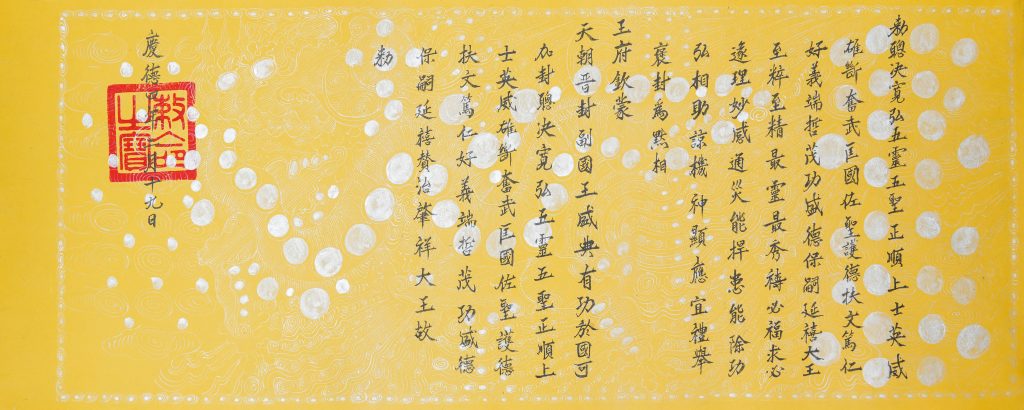 勅聰決寬弘五靈五聖正順上士英威
雄斷奮武匡國佐聖護德扶文篤仁
好義端哲茂功盛德保嗣延禧大王
至粹至精最靈最秀禱必福求必
遂理妙感通災能捍患能除功
弘相助諒機神顯應宜禮舉
褒封爲默相
王府欽蒙
天朝晉封副國王威典有功於國可
加封聰決寬弘五靈五聖正順上
士英威雄斷奮武匡國佐聖護德
扶文篤仁好義端哲茂功盛德
保嗣延禧贊治肇祥大王故
勅
慶德四年二月十九日
敕命之寶